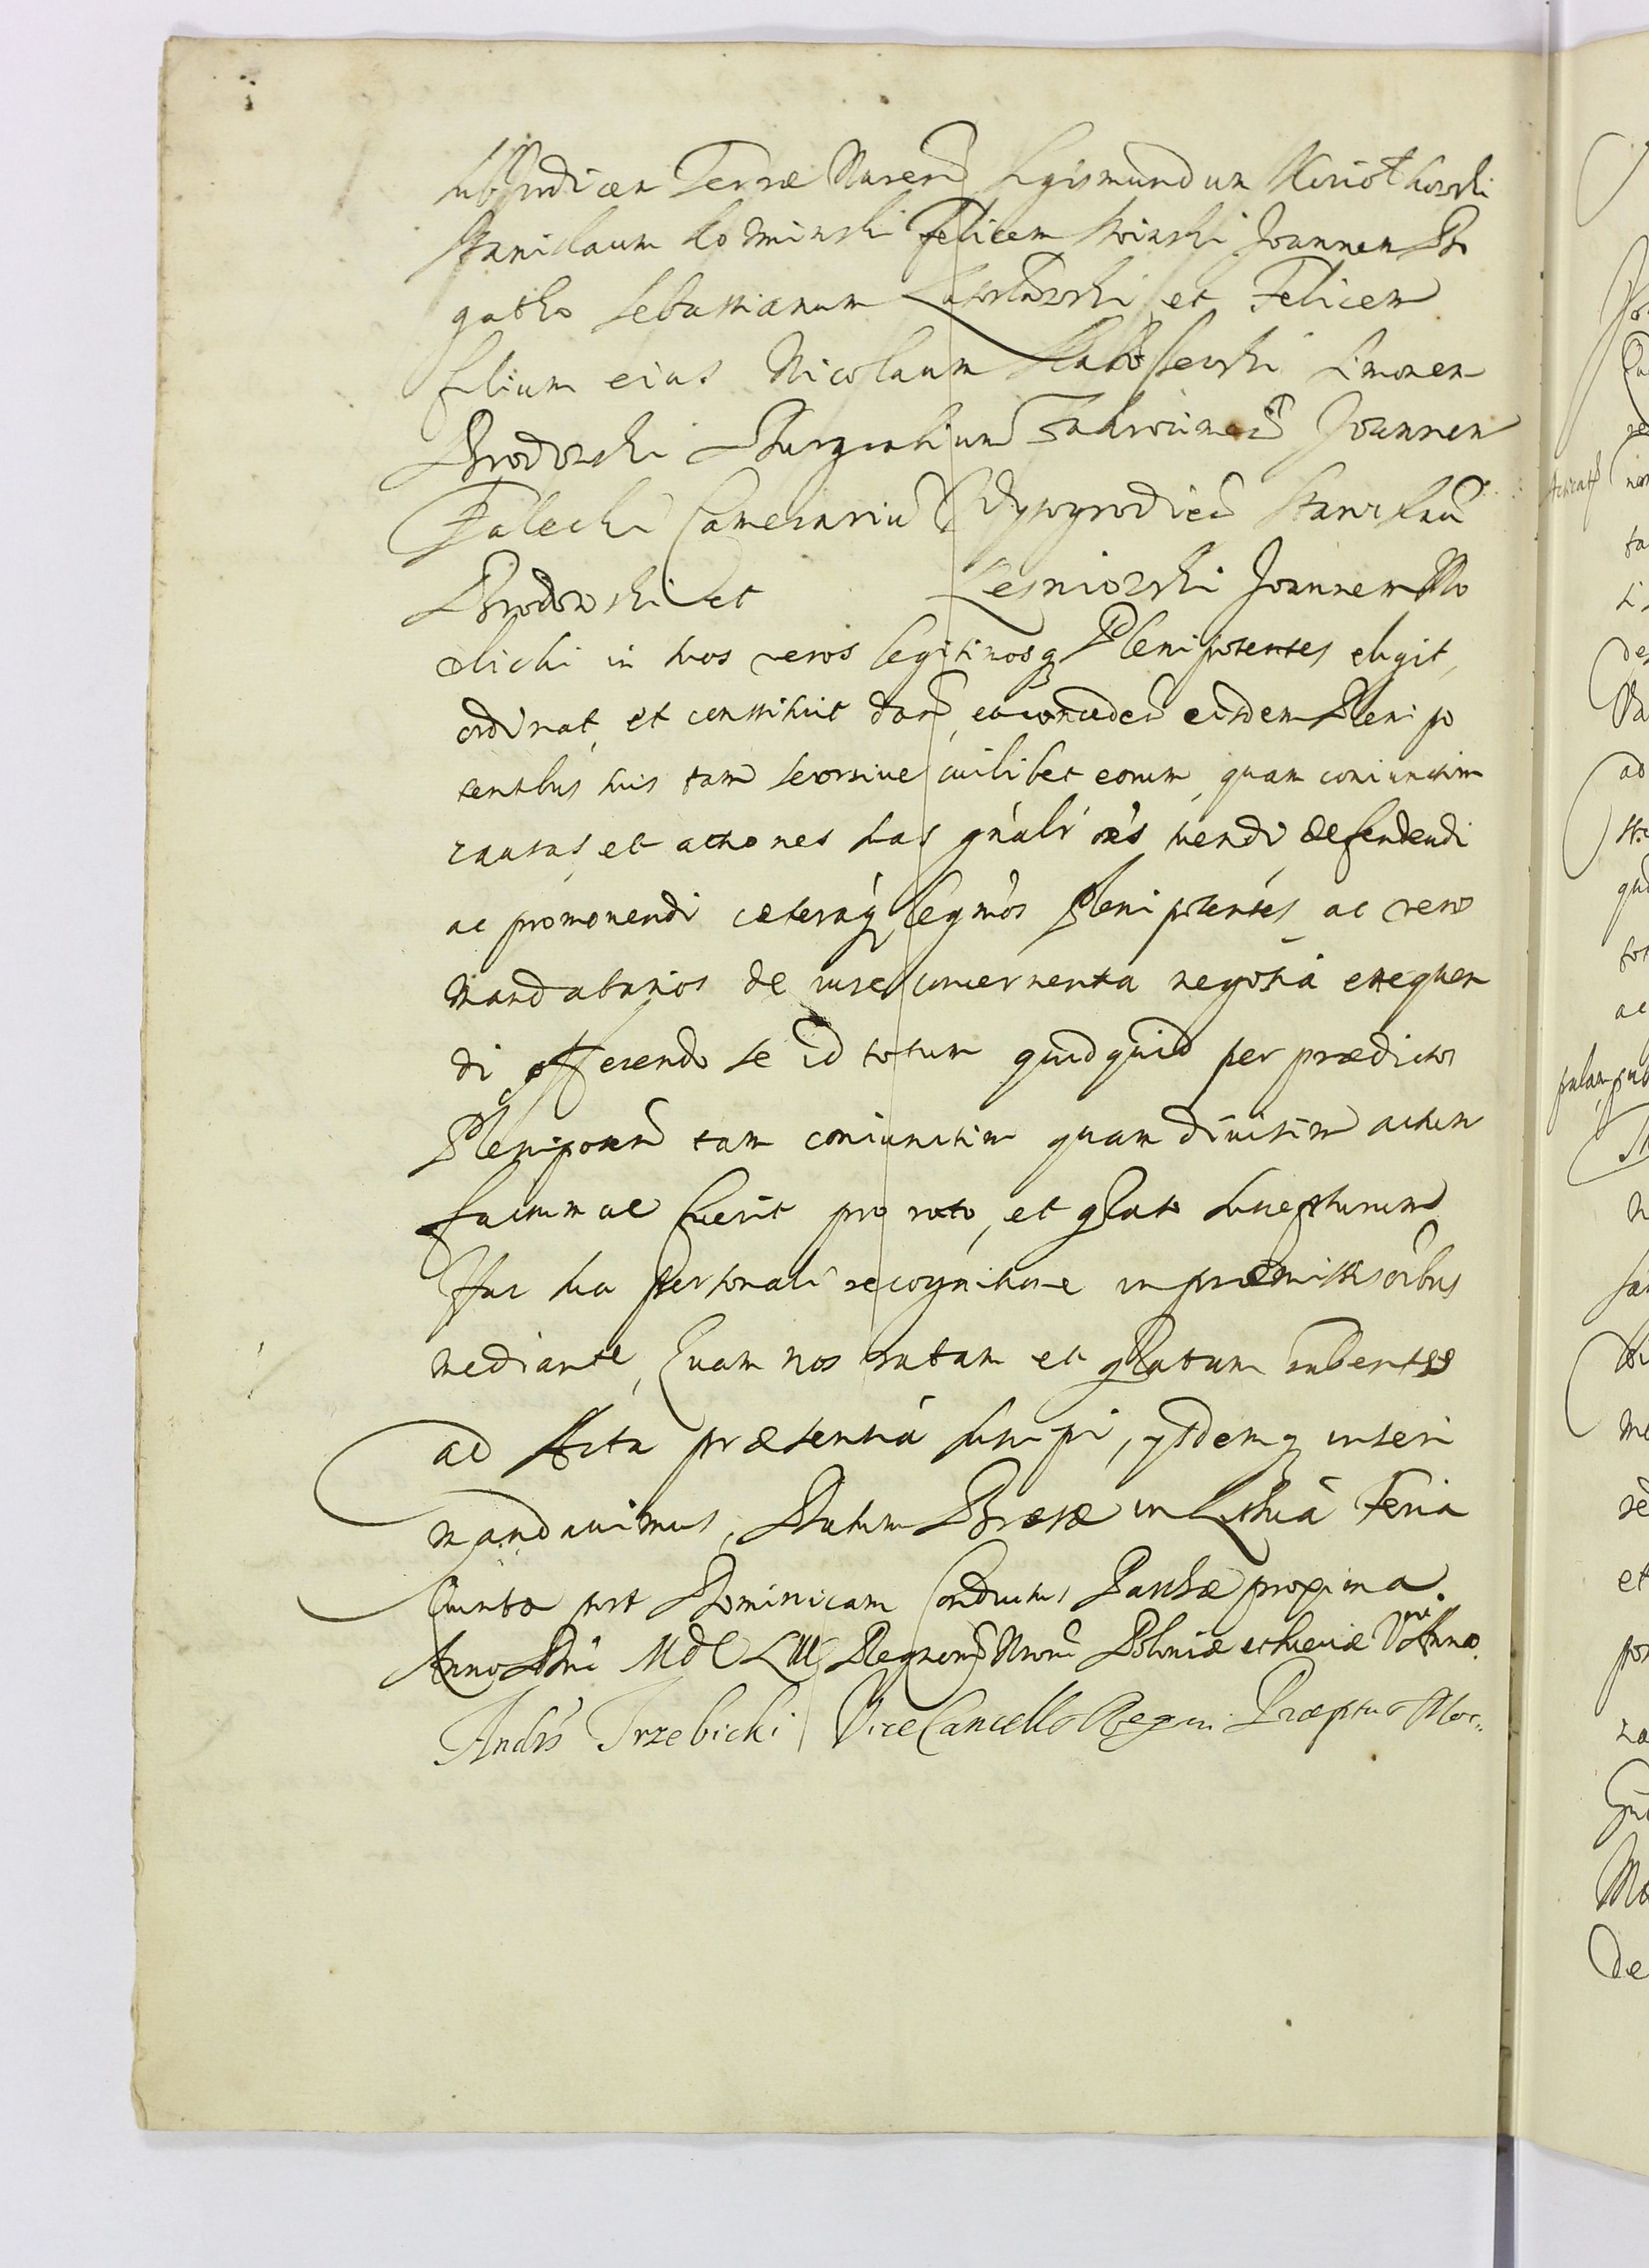 subJudicem Terrae Nurens Sigismundum
Stanislaum Felicem Joannem Bo
gatho Sebastianum et Felicem
filium eius Nicolaum Simonem
Brodowski Burgrabium Zakrocimen Joannem
Falecki Camerariu Wyssogrodien Stanislau
Brodowski et Lesniowski Joannem Mo
dlicki in suos veros legitimosq Plenipotentes eligit,
ordinat, et constituit dans, eaconcedens eisdem Plenipo
tentibus suis tam seorsive cuilibet eorum, quam coniunctim
causas, et actiones suas gnali oes tuendi defendendi
ac promovendi caeteraq legmos Plenipotentes ac veros
Mandatarios de iure concernentia negotia exequen
di offerendo se id totum quidquid per praedictos
Plenipoten tam coniunctim quam divisim actum
factum ac fuerit pro rato, et grato suscepturum
Hac sua personali recognitione in praemissis oibus
mediante, Quam nos ratam et gratam habentes
ad Acta praesentia suscipi, ysdemq inseri
mandavimus, Datum Brestae in Lithuā Feria
Quinta post Dominicam Conductus Paschae proxima.
Anno Dni MdC LIII Regnoru Nroru Poloniae et Sueciae V Anno
Andrs Trzebicki ViceCancells Regni Praeptus Moc: